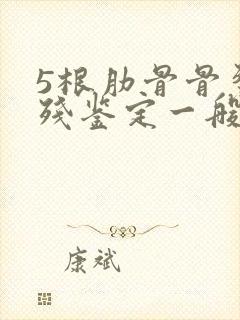 5根肋骨骨
残鉴定一般
康斌